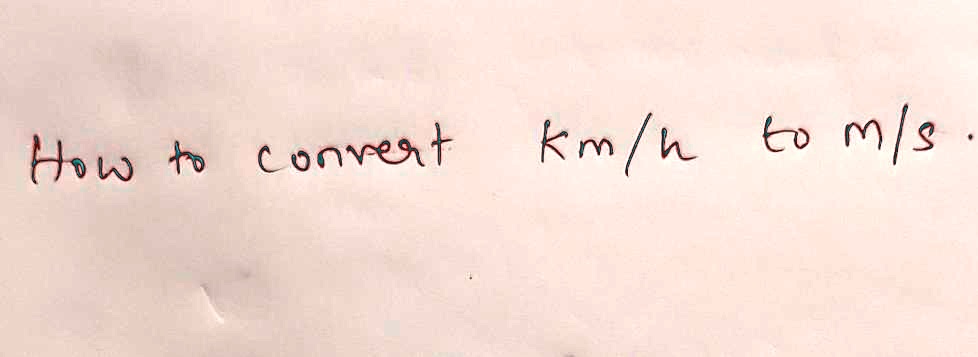 How to convert km/h to m/s.